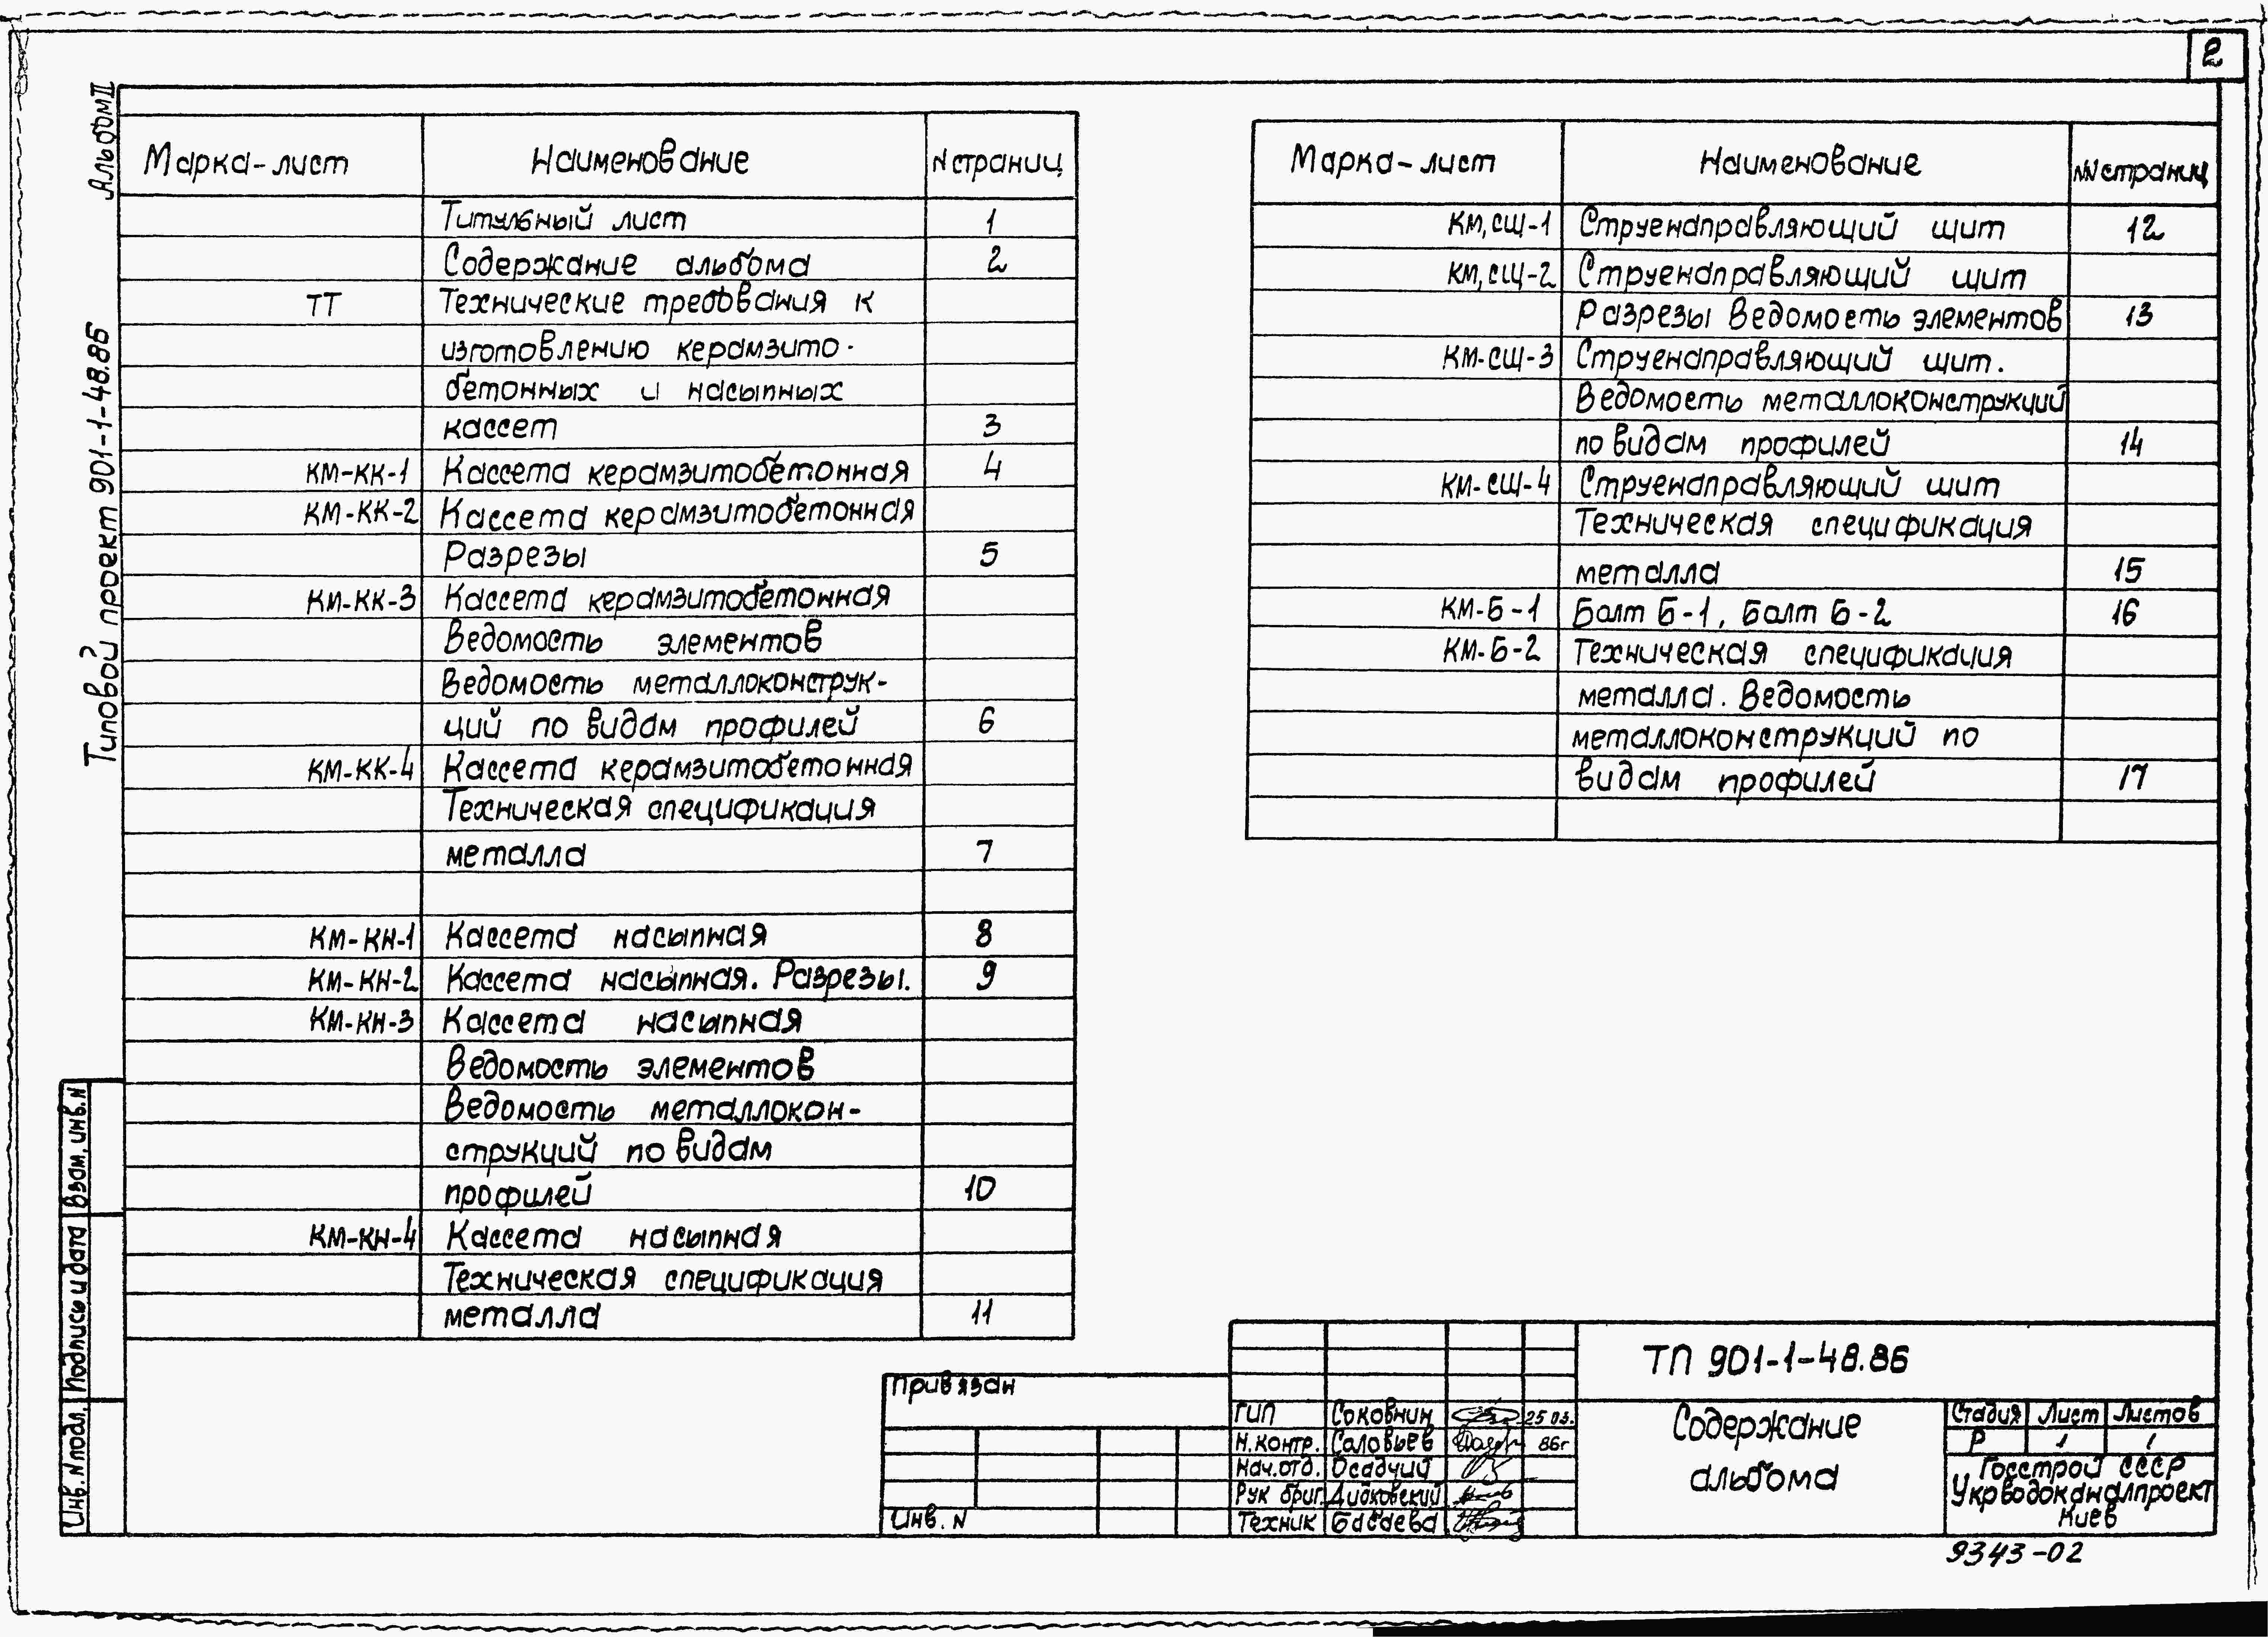 2
Альбом II
Типовой проект 901-1-48.86
Марка-лист Наименование N страниц
Титульный лист 1
Содержание альбома 2
ТТ Технические требования к
изготовлению керамзито-
бетонных и насыпных
кассет 3
КМ-КК-1 Кассета керамзитобетонная 4
КМ-КК-2 Кассета керамзитобетонная
Разрезы 5
КМ-КК-3 Кассета керамзитобетонная
Ведомость элементов
Ведомость металлоконструк-
ций по видам профилей 6
КМ-КК-4 Кассета керамзитобетонная
Техническая спецификация
металла 7
КМ-КН-1 Кассета насыпная 8
КМ-КН-2 Кассета насыпная. Разрезы. 9
КМ-КН-3 Кассета насыпная
Ведомость элементов
Ведомость металлокон-
струкций по видам
профилей 10
КМ-КН-4 Кассета насыпная
Техническая спецификация
металла 11
Марка-лист Наименование NN страниц
КМ,СЩ-1 Струенаправляющий щит 12
КМ,СЩ-2 Струенаправляющий щит
Разрезы Ведомость элементов 13
КМ-СЩ-3 Струенаправляющий щит.
Ведомость металлоконструкций
по видам профилей 14
КМ-СЩ-4 Струенаправляющий щит
Техническая спецификация
металла 15
КМ-Б-1 Балт Б-1, Балт Б-2 16
КМ-Б-2 Техническая спецификация
металла. Ведомость
металлоконструкций по
видам профилей 17
Взам. инв. N
Подпись и дата
Инв. N подл.
Привязан
Инв. N
ГИП Соковнин 25.03.
Н.контр. Соловьев 86г
Нач.отд. Осадчий
Рук бриг. Дидковский
Техник Басаева
ТП 901-1-48.86
Содержание
альбома
Стадия Лист Листов
Р 1 1
Госстрой СССР
Укрводоканалпроект
Киев
9343-02